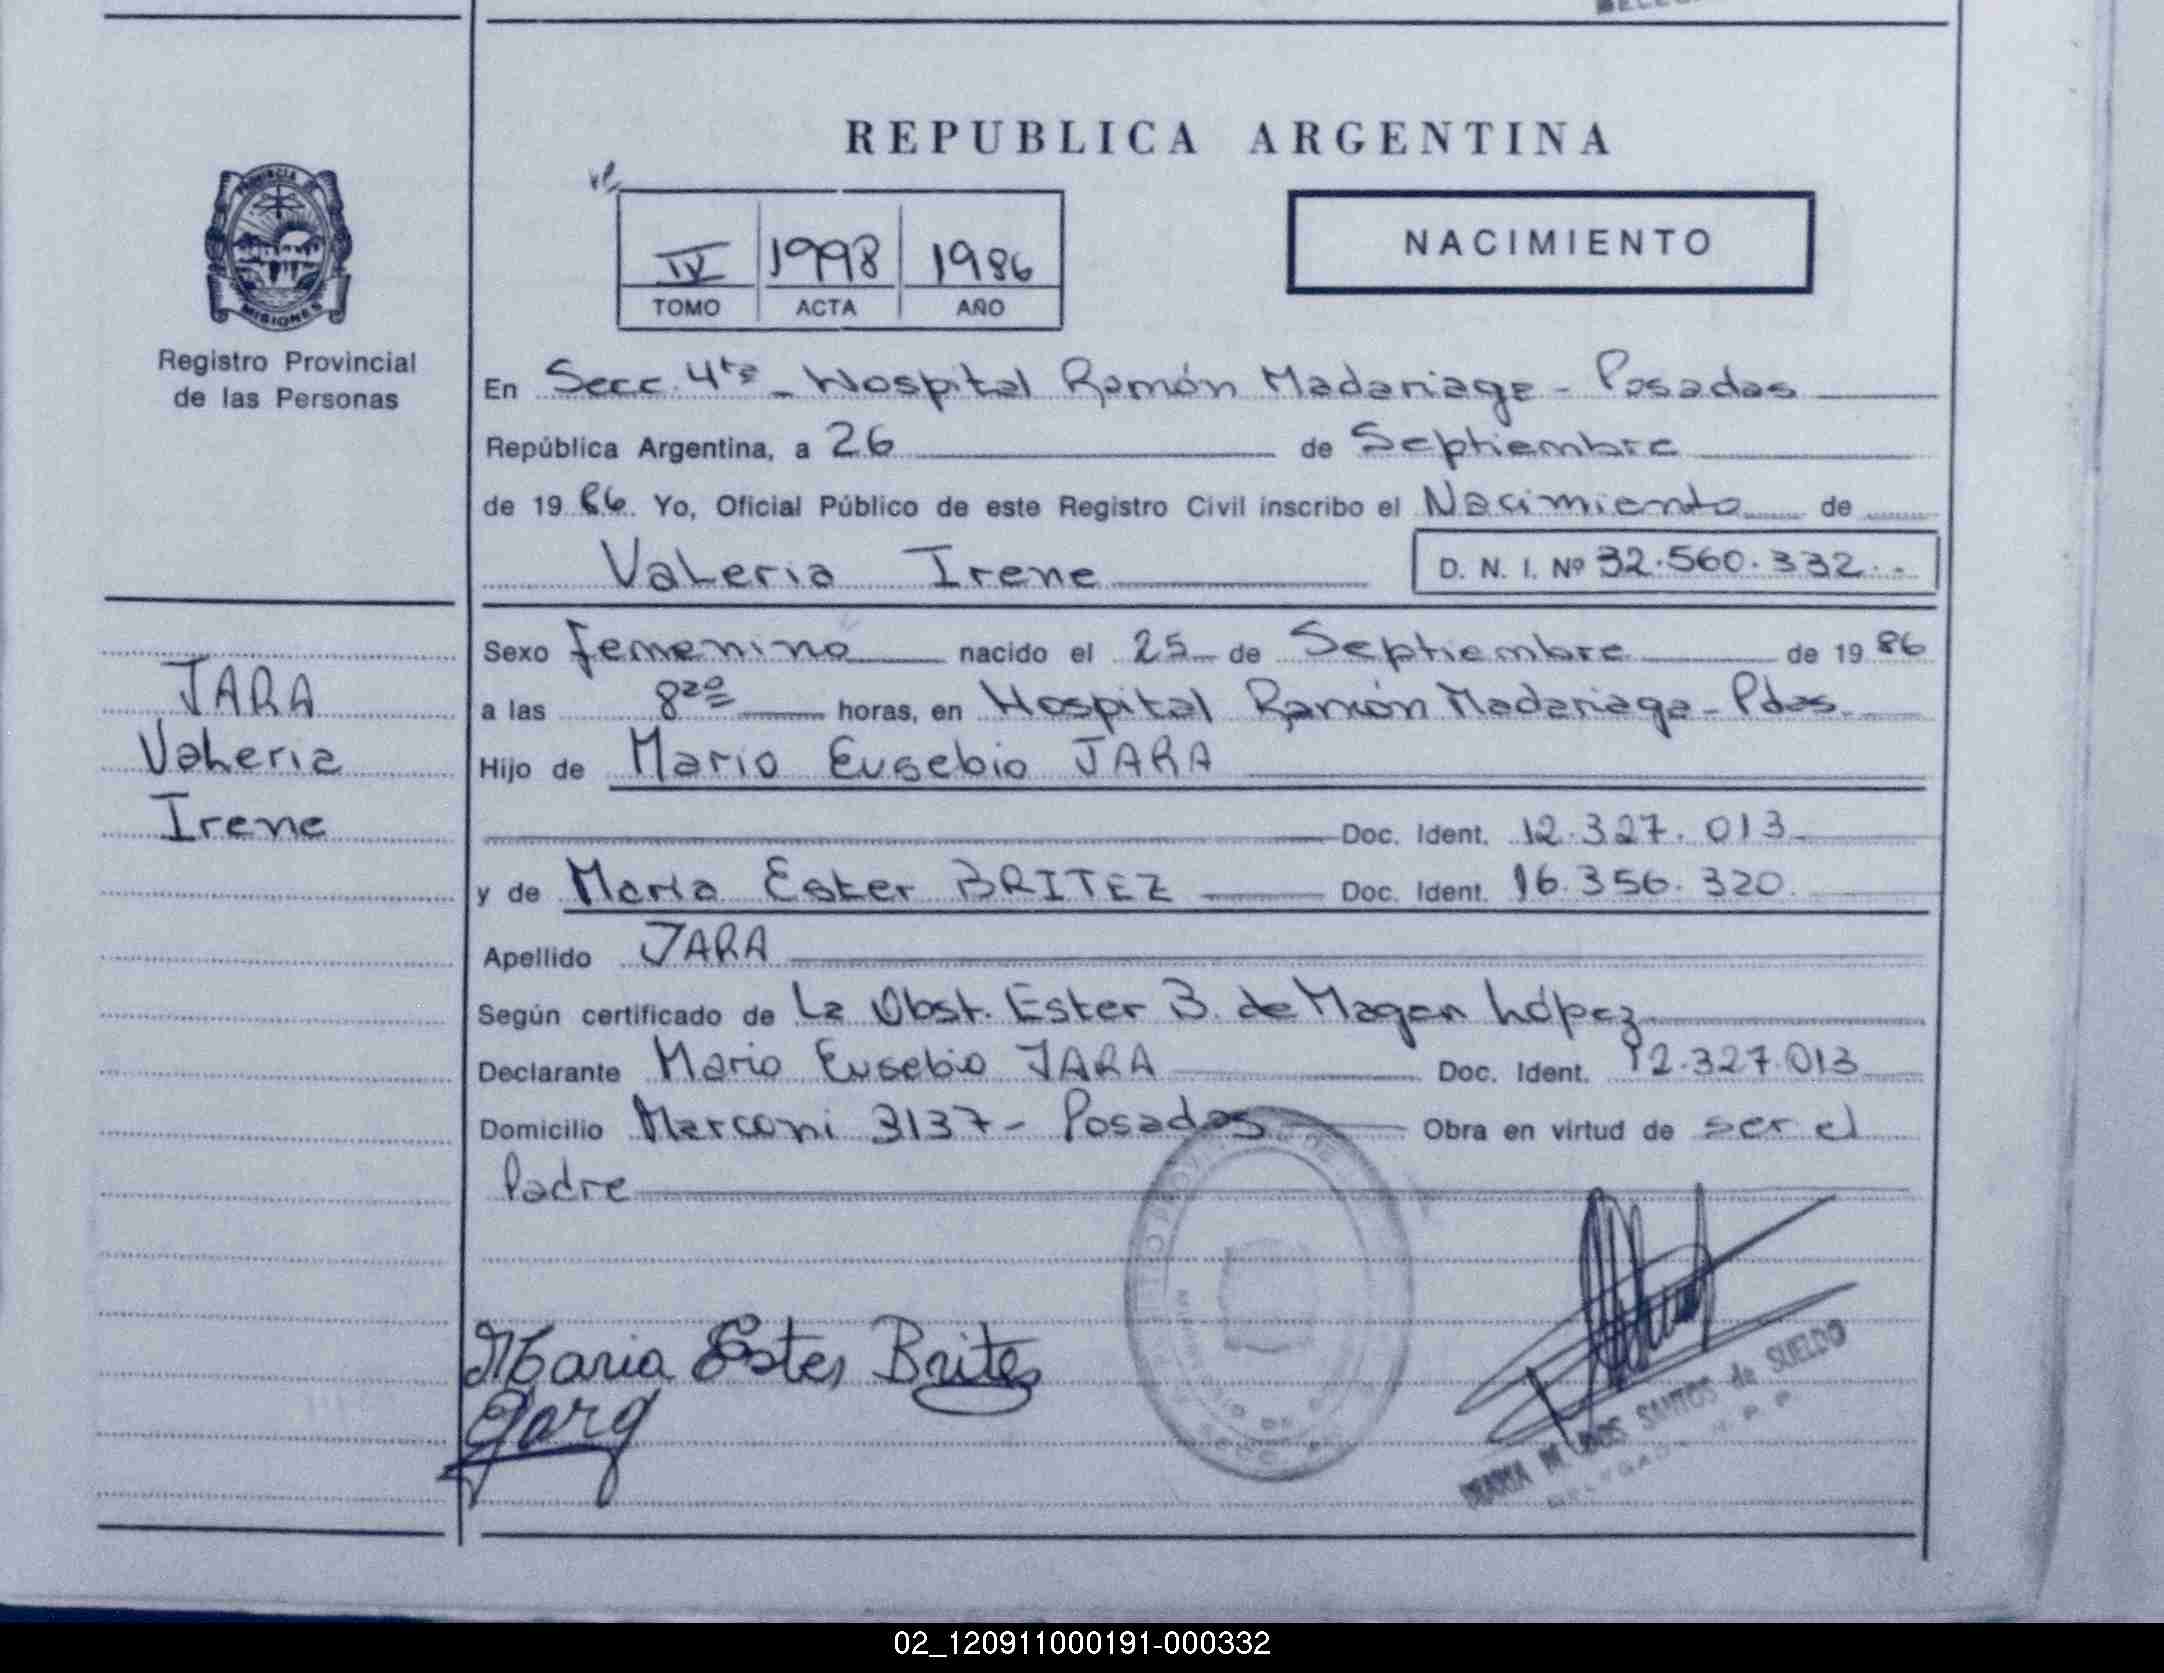 REPUBLICA ARGENTINA
PROVINCIA DE
MISIONES
Registro Provincial
de las Personas
IV 1998 1986
TOMO ACTA AÑO
NACIMIENTO
En Secc. 4ta - Hospital Ramón Madariaga - Posadas
República Argentina, a 26 de Septiembre
de 1986. Yo, Oficial Público de este Registro Civil inscribo el Nacimiento de
Valeria Irene D. N. I. Nº 32.560.332.-
JARA
Valeria
Irene
Sexo femenino nacido el 25 de Septiembre de 1986
a las 8 20 horas, en Hospital Ramón Madariaga - Pdas.
Hijo de Mario Eusebio JARA
Doc. Ident. 12.327.013
y de María Ester BRITEZ Doc. Ident. 16.356.320.
Apellido JARA
Según certificado de La Obst. Ester B. de Magan López
Declarante Mario Eusebio JARA Doc. Ident. 12.327.013
Domicilio Marconi 3137 - Posadas Obra en virtud de ser el
Padre
Maria Ester Brites
SANTOS de SUELDO
02_120911000191-000332